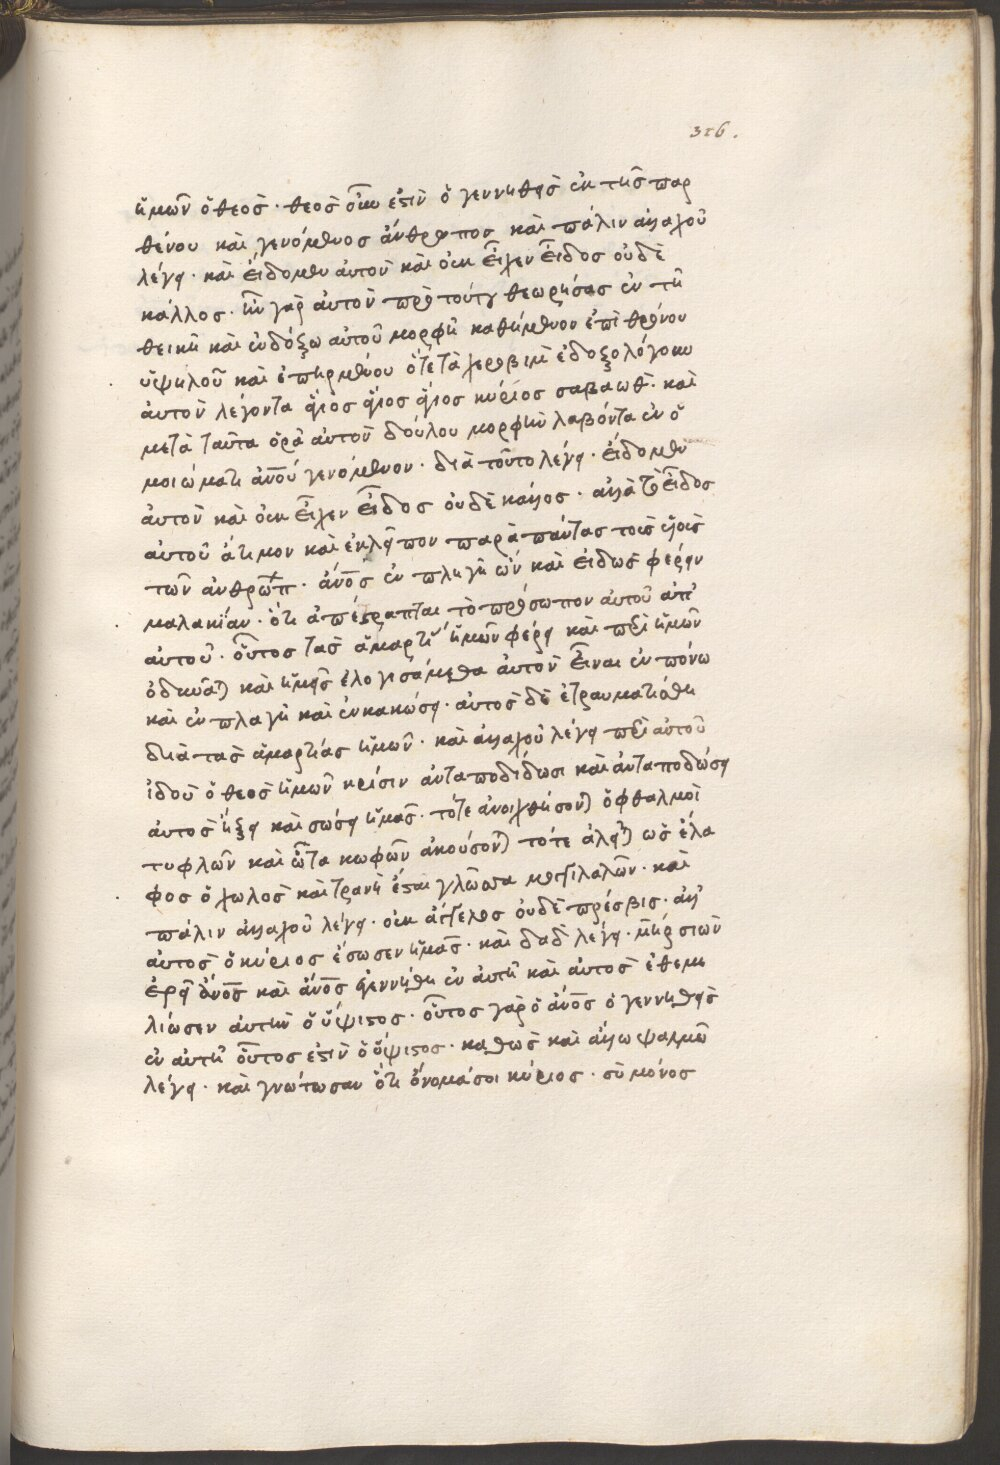 316.
ἡμῶν ὁ θεὸς · θεὸς οὖν ἐστὶν ὁ γεννηθεὶς ἐκ τῆς παρ
θένου καὶ γενόμενος ἄνθρωπος καὶ πάλιν ἀλλαχοῦ
λέγει · καὶ εἴδομεν αὐτὸν καὶ οὐκ εἶχεν εἶδος οὐδὲ
κάλλος · ἦν γὰρ αὐτὸν πρὸ τούτου θεωρήσας ἐν τῆ
θεϊκῆ καὶ ἐνδόξω αὐτοῦ μορφῆ καθήμενον ἐπὶ θρόνου
ὑψηλοῦ καὶ ἐπηρμένου ὅτε τὰ χερουβιμ ἐδοξολόγουν
αὐτὸν λέγοντα ἅγιος ἅγιος ἅγιος κύριος σαβαωθ · καὶ
μετὰ ταῦτα ὁρᾶ αὐτὸν δούλου μορφὴν λαβόντα ἐν ὁ
μοιώματι ἀνου γενόμενον · διὰ τοῦτο λέγει · εἴδομεν
αὐτὸν καὶ οὐκ εἶχεν εἶδος οὐδὲ κάλλος · ἀλλὰ τὸ εἶδος
αὐτοῦ ἄτιμον καὶ ἐκλεῖπον παρὰ πάντας τοὺς υἱοὺς
τῶν ἀνθρώπ · ἄνος ἐν πληγῆ ὢν καὶ εἰδὼς φέρειν
μαλακίαν · ὅτι ἀπέστραπται τὸ πρόσωπον αὐτοῦ ἀπ'
αὐτοῦ · οὗτος τὰς ἁμαρτί ἡμῶν φέρει καὶ περὶ ἡμῶν
ὀδυνᾶται καὶ ἡμεῖς ἐλογισάμεθα αὐτὸν εἶναι ἐν πόνω
καὶ ἐν πλαγῆ καὶ ἐν κακώσει · αὐτὸς δὲ ἐτραυματίσθη
διὰ τὰς ἁμαρτίας ἡμῶν · καὶ ἀλλαχοῦ λέγει περὶ αὐτοῦ
ἰδοὺ ὁ θεὸς ἡμῶν κρίσιν ἀνταποδίδωσι καὶ ἀνταποδώσει
αὐτὸς ἥξει καὶ σώσει ἡμᾶς · τότε ἀνοιχθήσονται ὀφθαλμοὶ
τυφλῶν καὶ ὦτα κωφῶν ἀκούσονται τότε ἁλεῖται ὡς ἔλα
φος ὁ χωλὸς καὶ τρανὴ ἔσται γλῶσσα μογγιλάλων · καὶ
πάλιν ἀλλαχοῦ λέγει · οὐκ ἄγγελος οὐδὲ πρέσβις · ἀλλ'
αὐτὸς ὁ κύριος ἔσωσεν ἡμᾶς · καὶ δαδ λέγει · μηρ σιὼν
ἐρεῖ ἄνος καὶ ἄνος ἐγεννήθη ἐν αὐτῆ καὶ αὐτὸς ἐθεμε
λίωσεν αὐτὴν ὁ ὕψιστος · οὗτος γὰρ ὁ ἄνος ὁ γεννηθεὶς
ἐν αὐτῆ οὗτος ἐστὶν ὁ ὕψιστος · καθὼς καὶ ἄλλω ψαλμῶ
λέγει · καὶ γνώτωσαν ὅτι ὄνομά σοι κύριος · σὺ μόνος